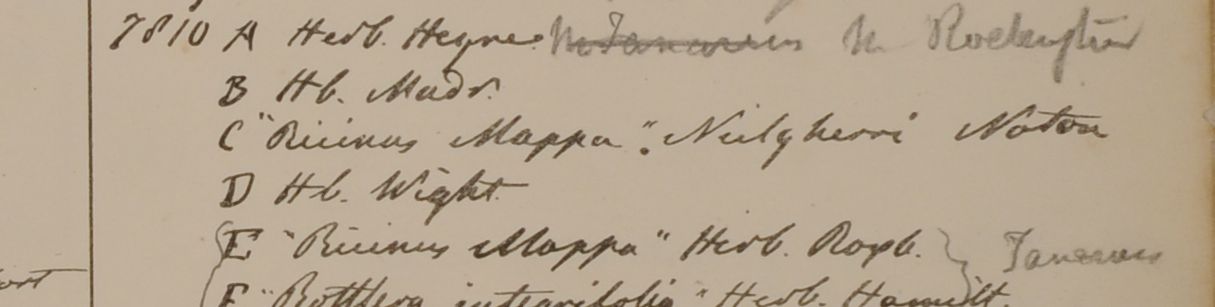 7810 A Herb. Heyne M. Tanarius M
B Hb. Madr.
C "Ricinus Mappa". Neilgherri Noton
D Hb. Wight
E "Ricinus Mappa" Herb. Roxb. Tanarius
F "Rottlera integrifolia" Herb. Hamilt.